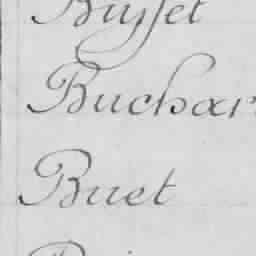 Buysset
Buchar
Buet